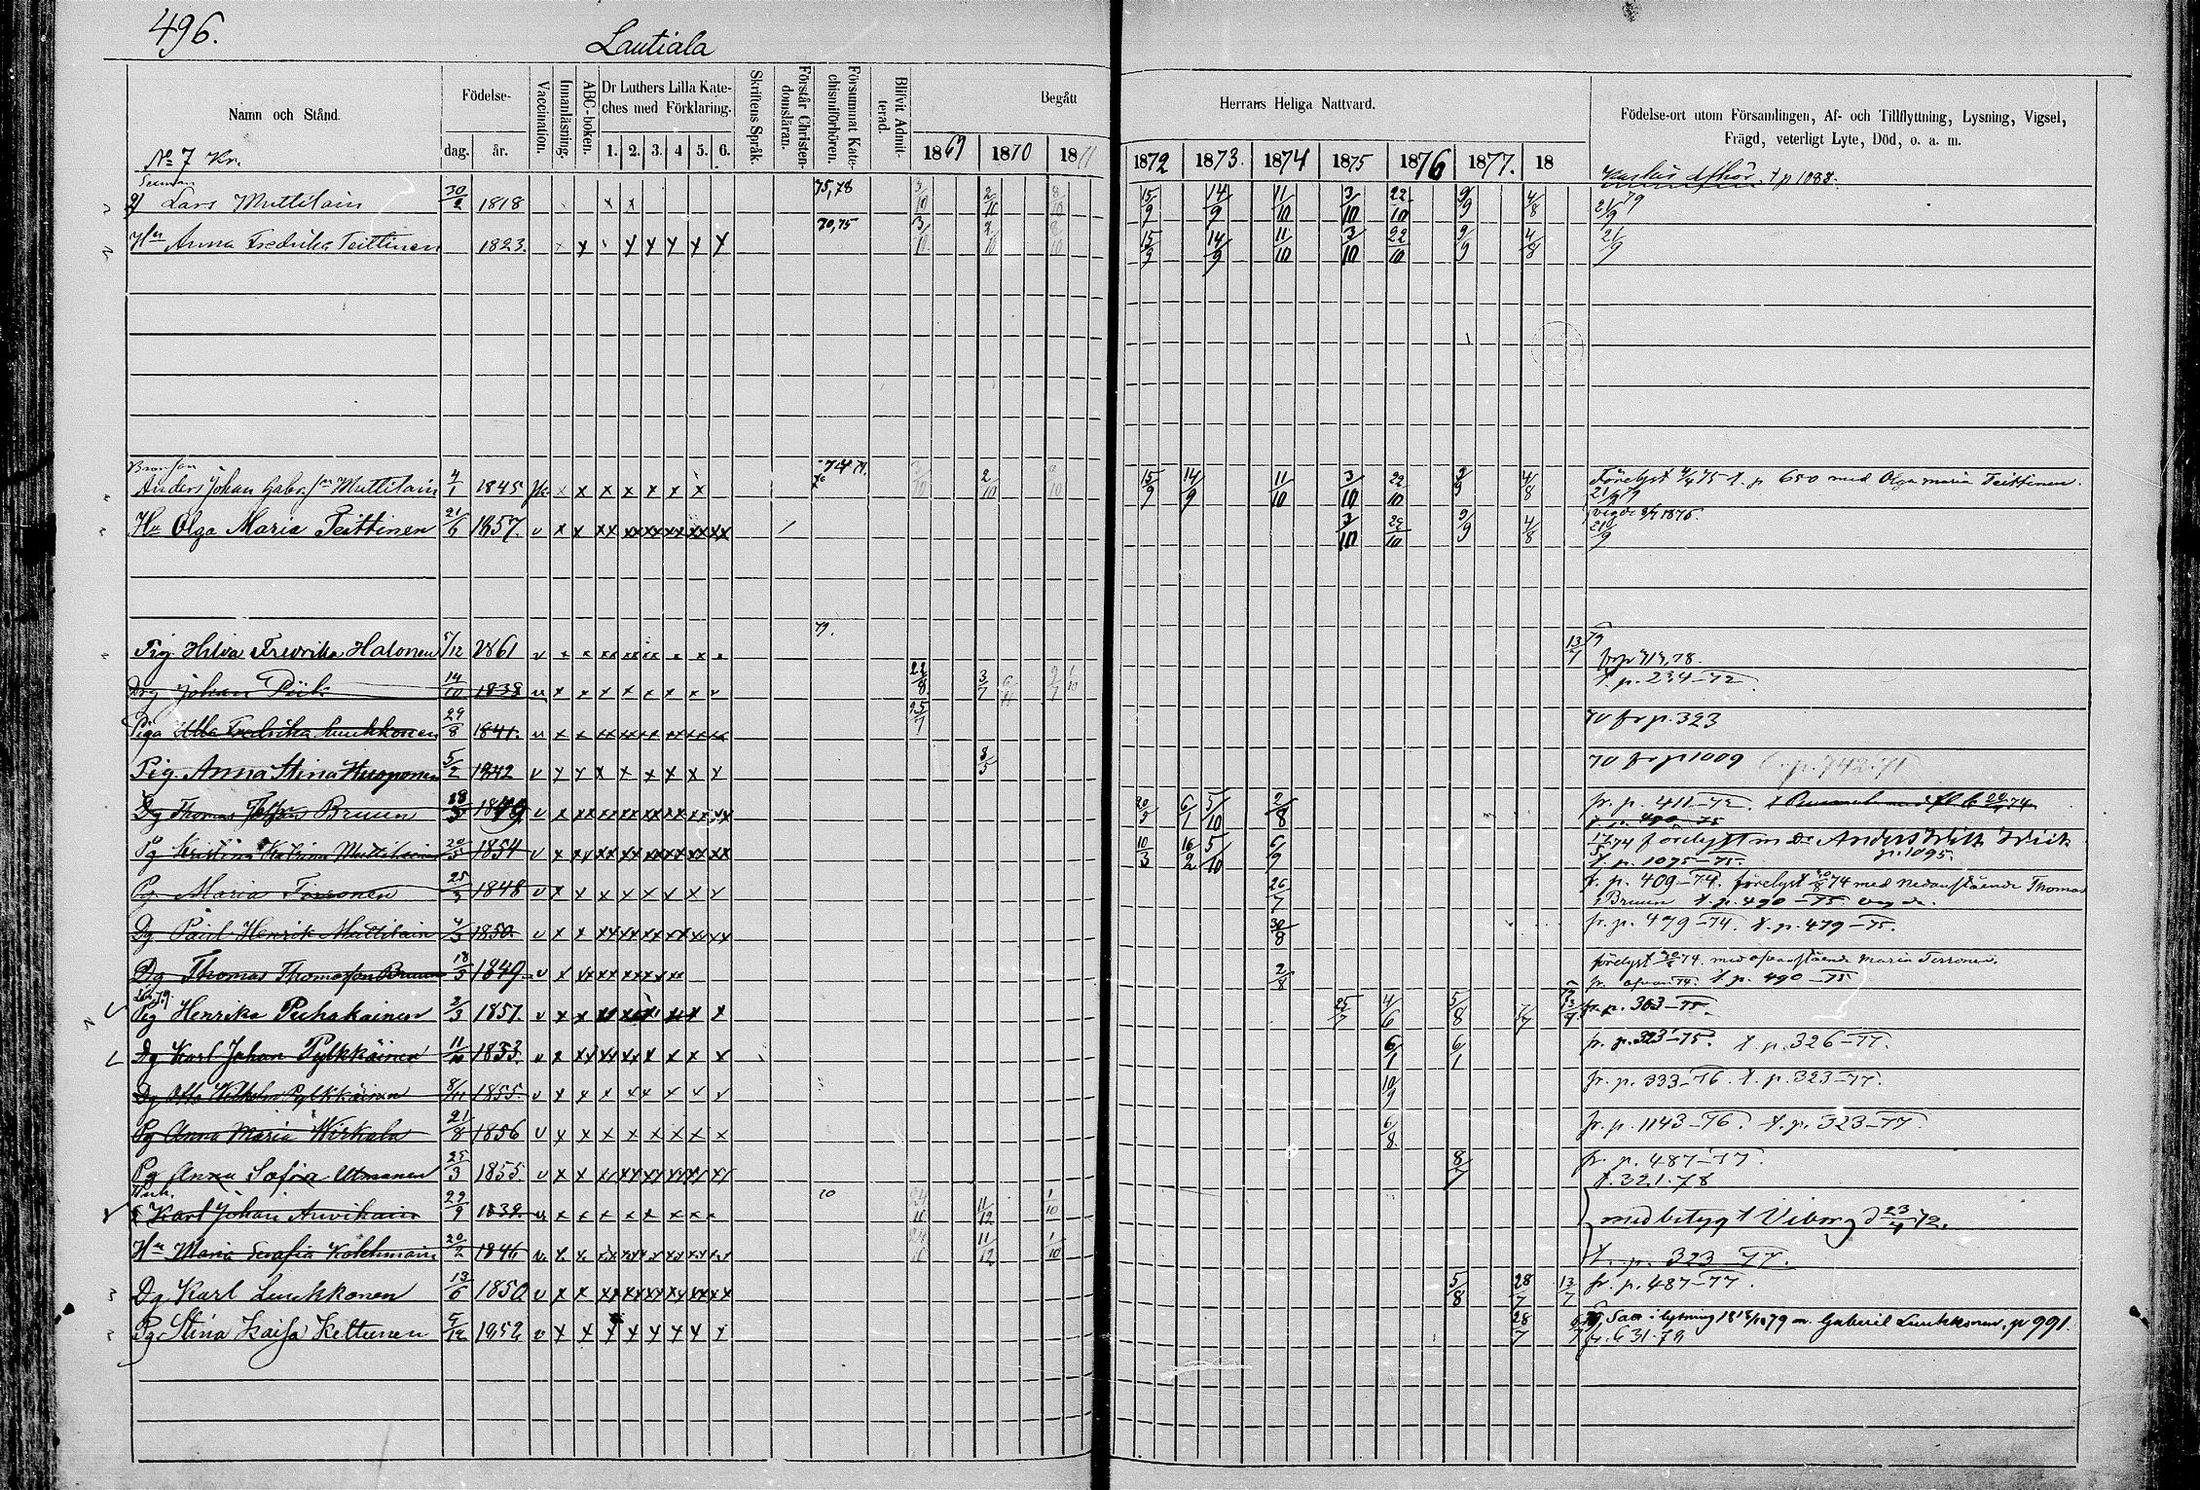 496.
Lautiala
Namn och Stånd.
Födelse-
dag.
år.
Vaccination.
Innanläsning.
ABC-boken.
Dr Luthers Lilla Kate-
ches med Förklaring.
1. 2. 3. 4 5. 6.
Skriftens Språk.
Förstår Christen-
domsläran.
Försummat Kate-
chismiförhören.
Blifvit Admit-
terad.
Begått
1869 1870 1871
Herrans Heliga Nattvard.
1872 1873. 1874 1875 1876 1877. 18
Födelse-ort utom Församlingen, Af- och Tillflyttning, Lysning, Vigsel,
Frägd, veterligt Lyte, Död, o. a. m.
No 7 Kr.
t p 1088.
Lars Muttilain 30/2 1818 x x 75, 78 3/10 2/10 8/10 15/9 14/9 11/10 3/10 22/10 9/9 4/8 21/9 79
Hu Anna Fredrika Teittinen 1823. x x x x x x 70, 75 3/10 2/10 8/10 15/9 14/9 11/10 3/10 22/10 9/9 4/8 21/9
Anders Johan Gabr. Muttilain 4/1 1845 x x x x x x x 2/10 15/9 14/9 11/10 3/10 22/10 9/9 4/8 Förelyst 4/4 75 t. p 650 med Olga Maria Teittinen.
Hu Olga Maria Teittinen 21/6 1857. v x x xx xx xx xx xx xx / 3/10 22/10 9/9 4/8 1875.
21/9
Pig Hilda Fredrika Halonen 5/12 1861 v x x xx xx xx x x x 79. 13/7 79 frp 713, 78.
Drg Johan Piik 14/10 1838 x x x x x x x v 22/8 3/7 t. p. 234-72
Piga Ulla Fredrika Luukkonen 29/8 1841. x x xx xx xx xx xx xx 25/7 70 fr p. 323
Pig. Anna Stina Huoponen 5/2 1842 v x x x x x x x x 8/5 70 fr p 1009 t. p. 742-71
Dg Thomas Bruun 18/3 1849 v x xx xx xx xx xx xx xx 6/1 5/10 2/8 fr. p. 411-72.
t. p. 490-75
Pg Kristina Katrina Muttilainen 20/5 1854 v x xx xx xx xx xx xx xx 10/3 16/2 5/10 6/9 17/5 74 förelyst m Dr Anders
p. 1095.
t. p. 1075-75.
Pg. Maria Tirronen 25/3 1848 v x x x x x x x x 26/7 f. p. 409-74. förelyst 30/8 74 med nedanstående Thomas
Bruun t. p. 490-75
Dg. Paul Henrik Muttilain 4/3 1850. v x x xx xx xx xx xx xx 30/8 fr. p. 479-74. t. p. 479-75.
Dg. Thomas Thomasson Bruun 18/3 1849 v x xx xx xx xx xx 2/8 förelyst 30/8 74. med ofvanstående Maria Tirronen.
fr. ofvan 74. t p. 490-75
Pig Henrika Puhakainen 2/3 1857. v x x xx xx xx xx x x 25/7 4/6 5/8 fr. p. 303-75.
Dg Karl Johan Pylkkäinen 11/10 1853. v x xx xx xx x x x x 6/1 6/1 fr. p. 323-75. t. p. 326-77.
Dg Otto Wilhelm Pylkkäinen 8/11 1855. v x x x xx xx x x x 10/9 fr. p. 333-76. t. p. 323-77.
Pg Anna Maria Wirkala 21/8 1856 v x x x x x x x x 6/8 fr. p. 1143-76. t. p. 323-77.
Pg Anna Sofia Utmanen 25/3 1855. v x x xx xx xx xx xx xx 8/7 fr. p. 487-77.
t. 321.78
Karl Johan Auvikain 29/9 1838. x x x x x x x x 10 11/12 1/10 med betyg t Viborg d 23/4 72.
Hu Maria Serafia Kolehmain 20/2 1846 x x xx xx xx xx xx xx 11/12 1/10 t. p. 323-77.
Dg Karl Luukkonen 13/6 1850 v x x xx xx xx xx xx xx 5/8 28/7 13/7 fr. p. 487-77.
Pg Stina Kaisa Keltunen 5/12 1852 v x x x x x x x x 28/7 lysning 79 m. Gabriel Luukkonen, p 991.
fr. 631.78